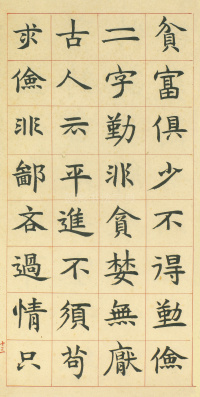 貧富俱少不得勤儉
二字勤非貪婪無厭
古人云平進不須苟
求儉非鄙吝過情只